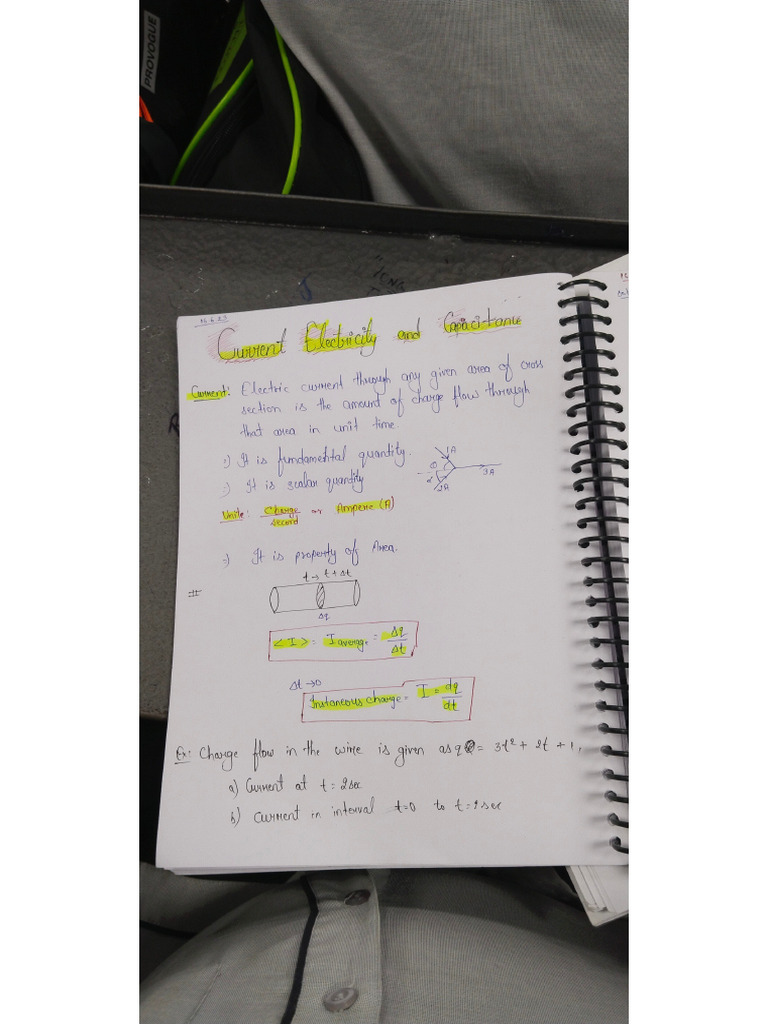 PROVOGUE
Current Electricity and Capacitance
Current: Electric current through any given area of cross
section is the amount of charge flow through
that area in unit time.
It is fundamental quantity.
It is scalar quantity
1A
θ
3A
2A
Units: Charge/second or Ampere (A)
It is property of Area.
t → t + Δt
#
Δq
<I> = I average = Δq/Δt
Δt → 0
Instaneous charge = I = dq/dt
Ex: Charge flow in the wire is given as q = 3t² + 2t + 1,
a) Current at t = 2sec
b) Current in interval t=0 to t=2sec